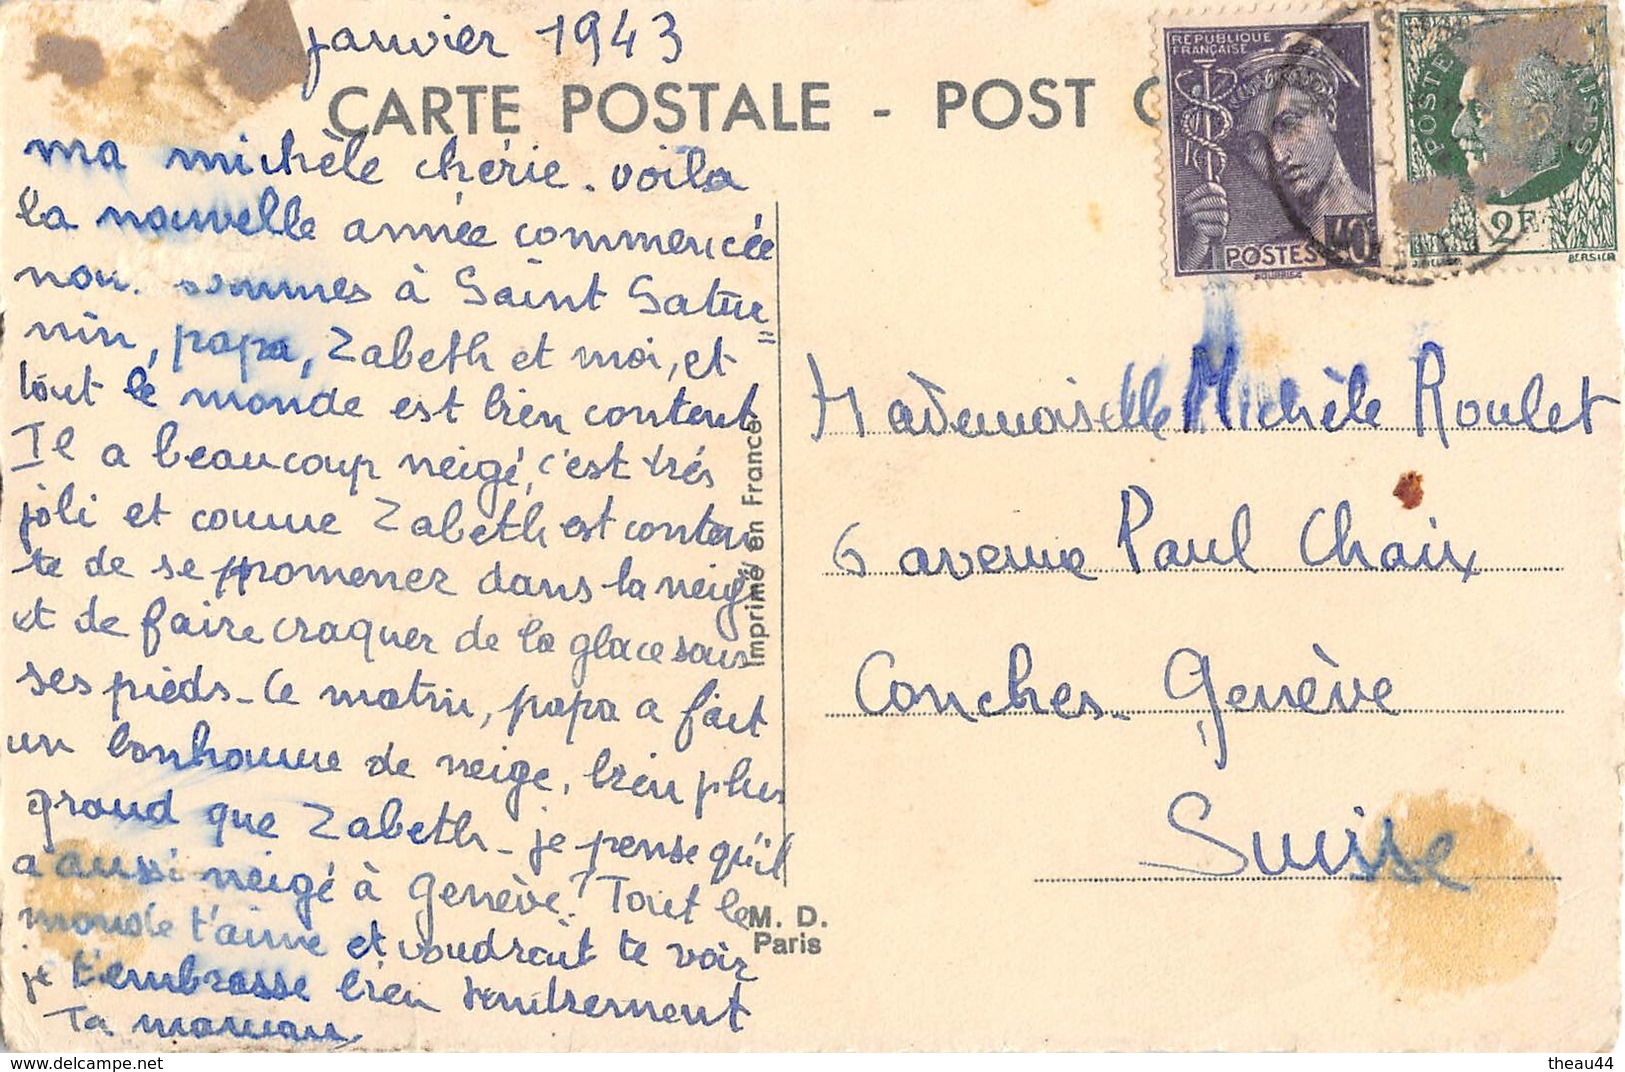 janvier 1943
CARTE POSTALE - POST C
ma michèle chérie. voila
la nouvelle année commencée
nou. sommes à Saint Satur=
nin, papa, Zabeth et moi, et
tout le monde est bien content
Il a beaucoup neigé, c'est très
joli et comme Zabeth est conten
te de se promener dans la neige
et de faire craquer de la glace sous
ses pieds - Ce matin, papa a fait
un bonhomme de neige, bien plus
grand que Zabeth - je pense qu'il
a aussi neigé à Genève? Tout le
monde t'aime et voudrait te voir
je t'embrasse bien tendrement
Ta maman
Imprimé en France
M. D.
Paris
RÉPUBLIQUE
FRANÇAISE
POSTES
40c
POSTES
FRANÇAISES
2F
BERSIER
Mademoiselle Michèle Roulet
6 avenue Paul Chaix
Conches - Genève
Suisse
delcampe.net
theau44